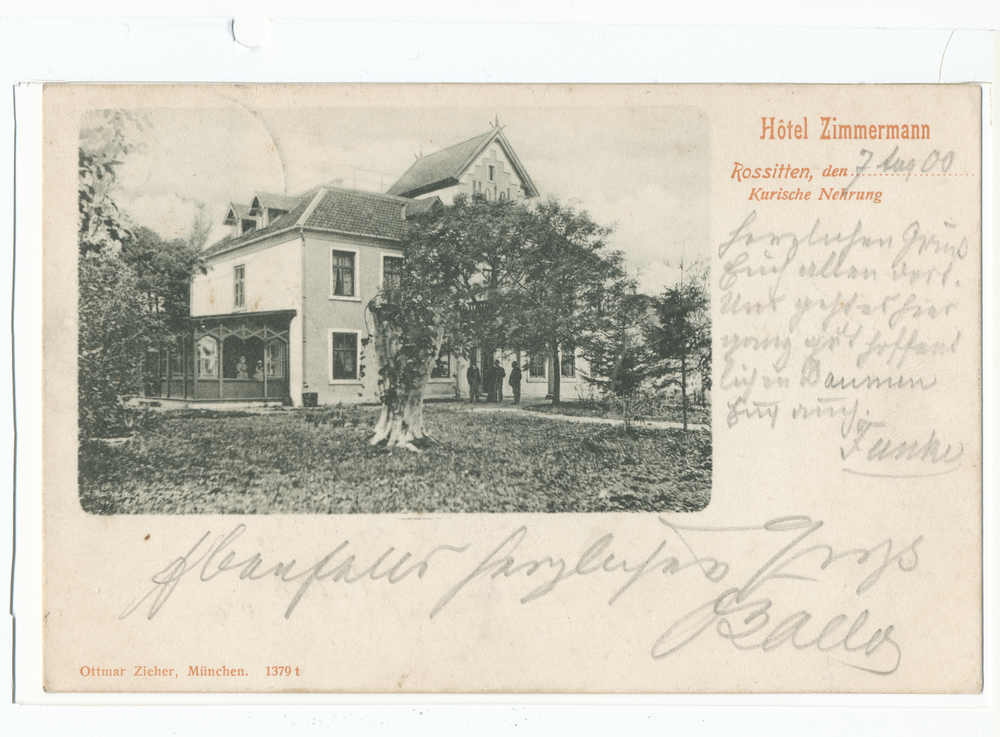 Hôtel Zimmermann
Rossitten, den 7 Aug 00
Kurische Nehrung
Herzlichen Gruß
Euch allen dort.
Uns geht es hier
ganz gut hoffent
lichen
Euch auch.
Funke
Ebenfalls herzlichen Gruß
Ottmar Zieher, München. 1379 t